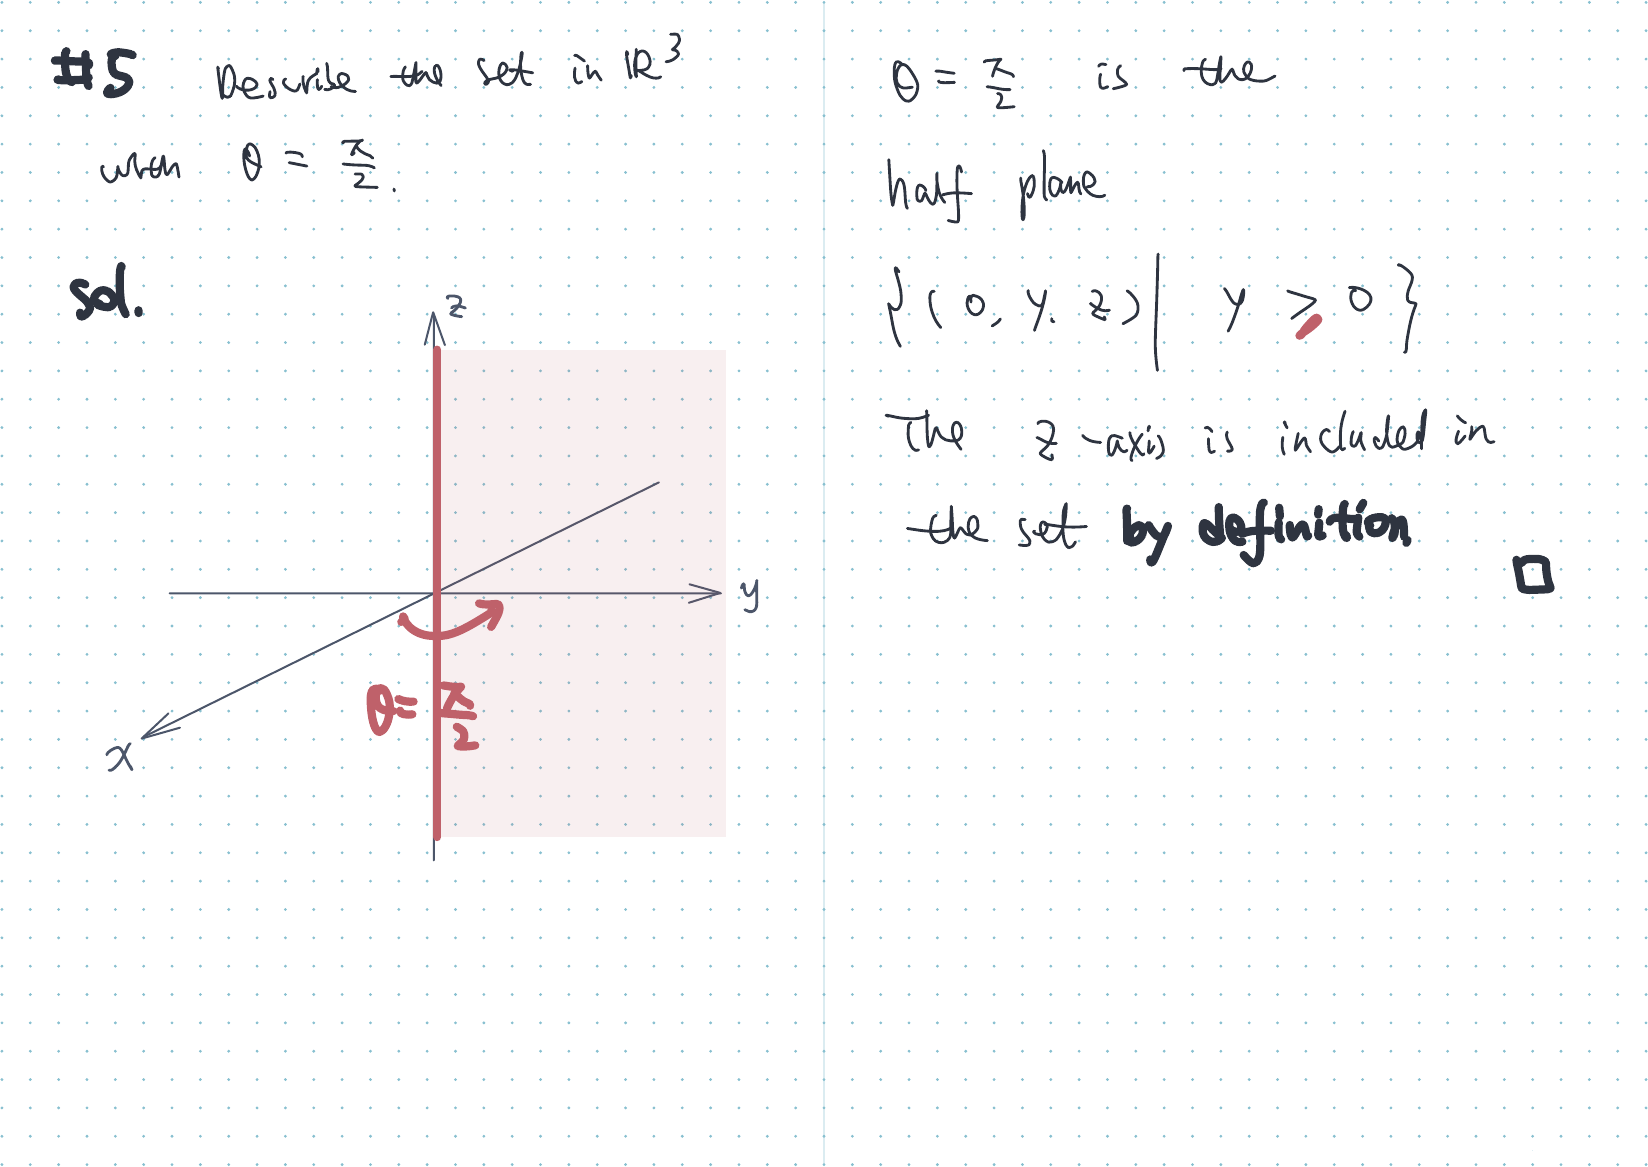 #5 Describe the set in ℝ³
when θ = π/2.
sol.
z
y
x
θ = π/2
θ = π/2 is the
half plane
{(0, y, z) | y ≥ 0}
The z-axis is included in
the set by definition.
□